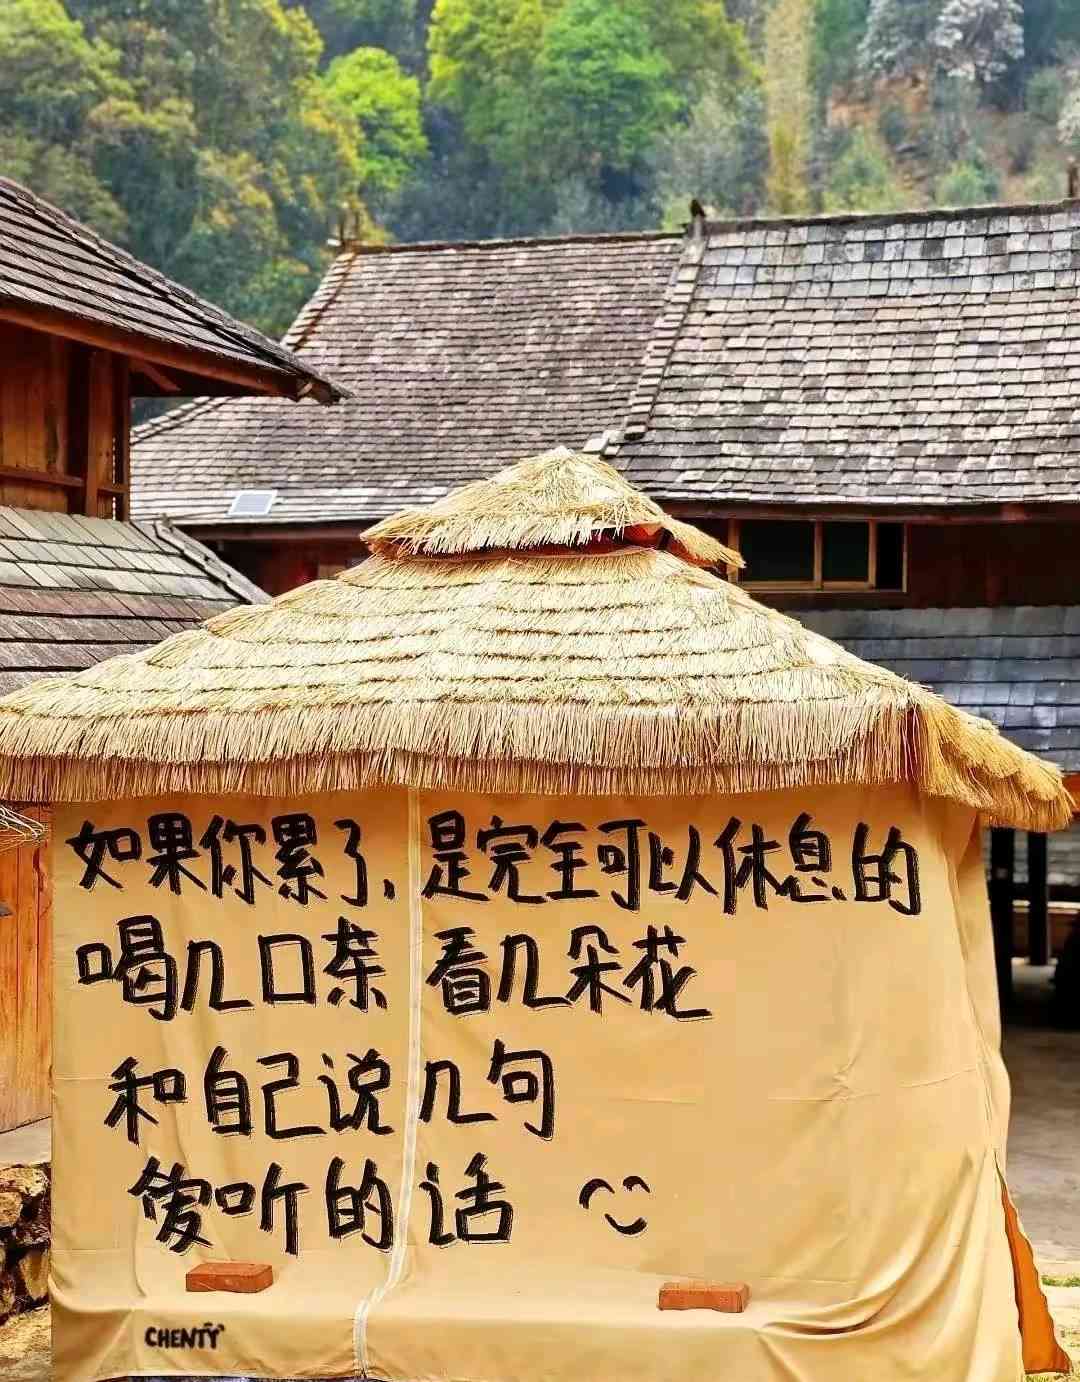 如果你累了,是完全可以休息的
喝几口茶 看几朵花
和自己说几句
爱听的话
CHENTY